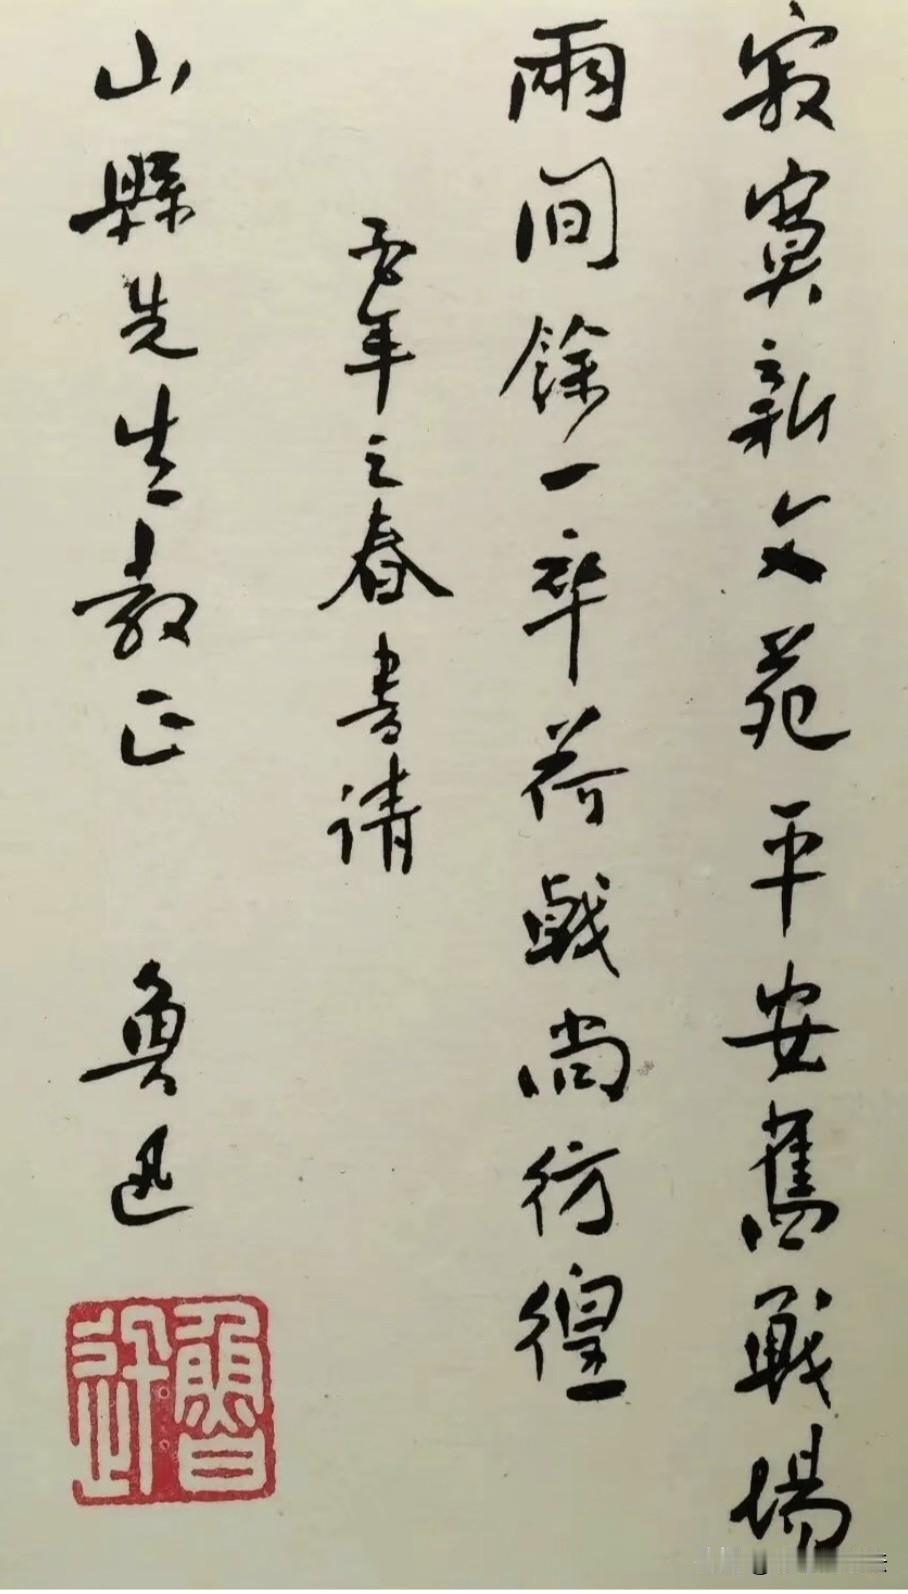 寂寞新文苑平安舊戰場
兩間餘一卒荷戟尚彷徨
酉年之春書請
山縣先生教正 魯迅
魯迅